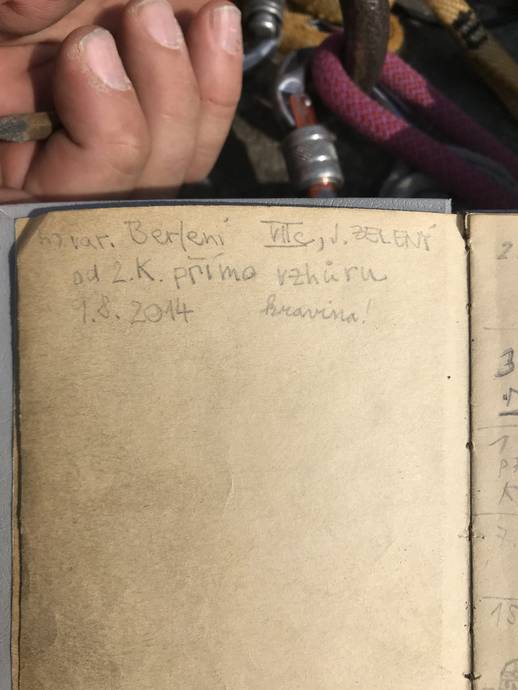 var. Berlení VIIc, J. ZELENÝ
od 2.K. přímo vzhůru
9.8.2014 kravina!
2
3
1
K
15